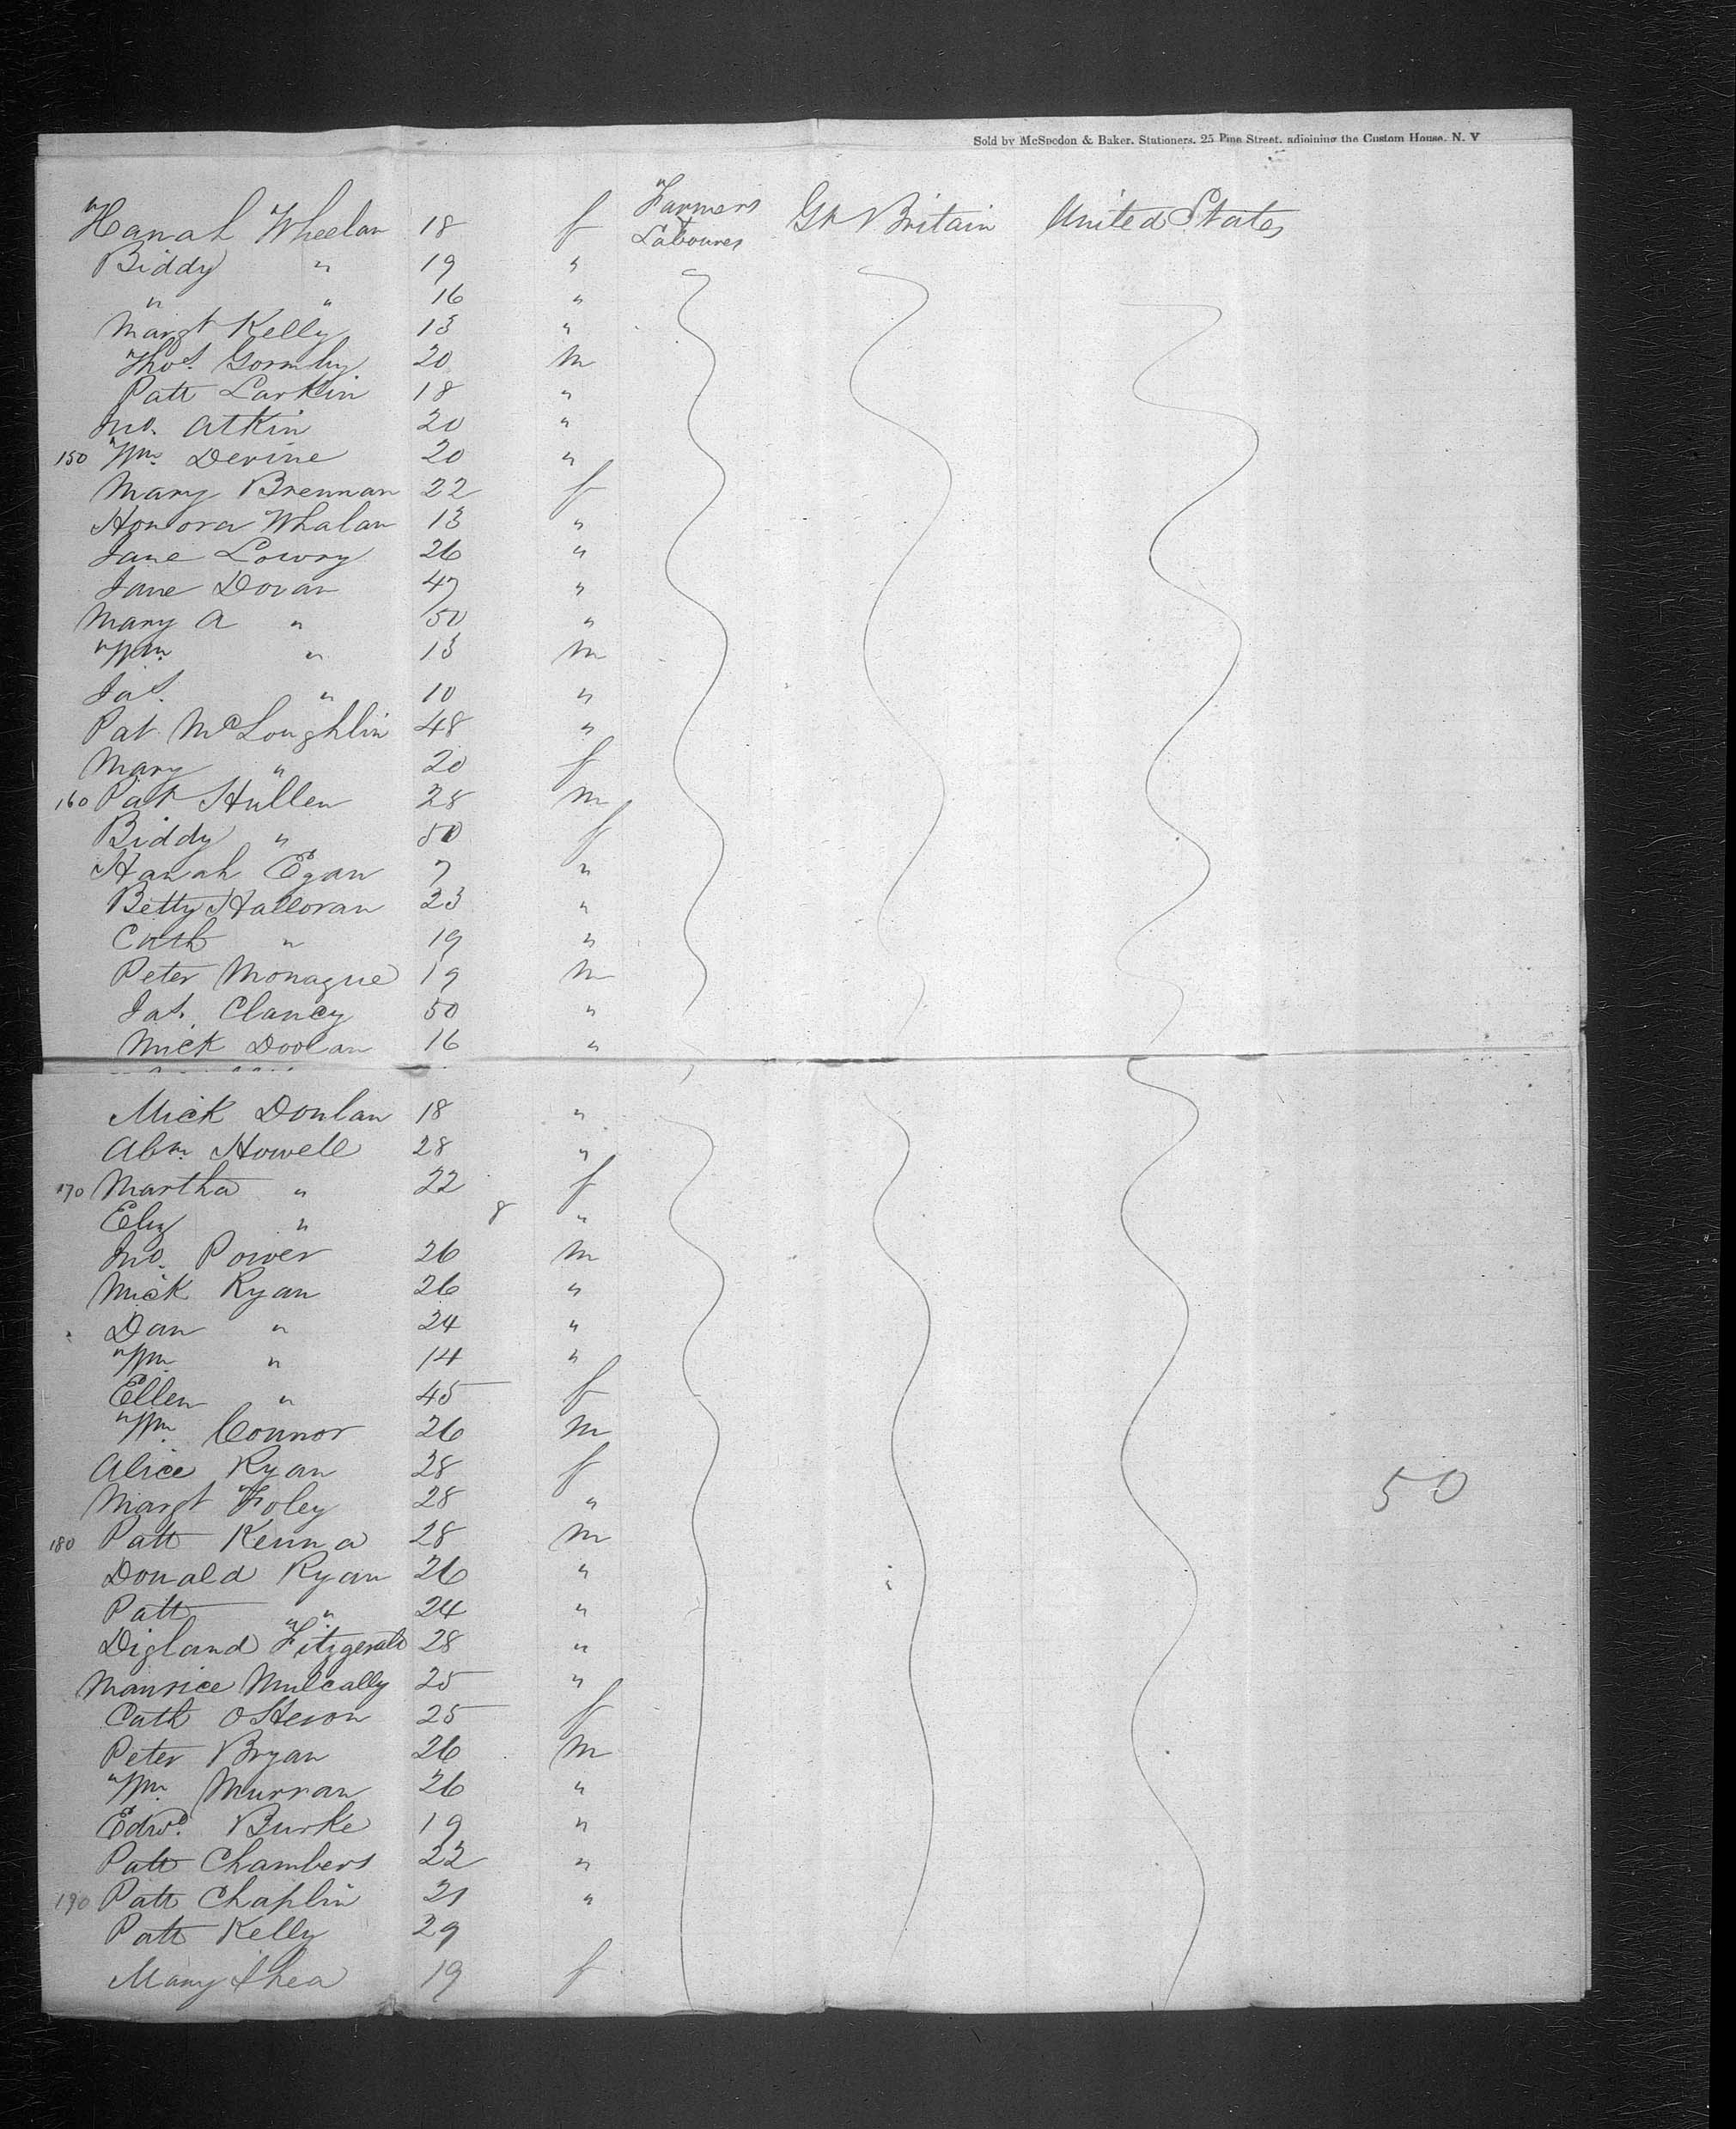 Sold by McSpedon & Baker, Stationers, 25 Pine Street, adjoining the Custom House, N. Y
Hanah Wheelan 18 f Farmers & Laboures Gt Britain United States
Biddy " 19 "
" " 16 "
Margt Kelly 13 "
Thos. Gormley 20 m
Patt Larkin 18 "
Jno. Atkin 20 "
150 Wm. Devine 20 "
Mary Brennan 22 f
Honora Whalan 13 "
Jane Lowry 26 "
Jane Doran 47 "
Mary A " 50 "
Wm. " 13 m
Jas. " 10 "
Pat McLoughlin 48 "
Mary " 20 f
160 Pat Hullen 28 m
Biddy " 50 f
Hanah Egan 7 "
Betty Halloran 23 "
Cath " 19 "
Peter Monague 19 m
Jas. Clancy 50 "
Mick Doolan 16 "
Mick Donlan 18 "
Abm. Howell 28 "
170 Martha " 22 f
Eliz " 8 "
Jno. Power 26 m
Mick Ryan 26 "
Dan " 24 "
Wm. " 14 "
Ellen " 45 f
Wm. Connor 26 m
Alice Ryan 28 f
Margt Foley 28 " 50
180 Patt Kenna 28 m
Donald Ryan 26 "
Patt " 24 "
Digland Fitzgerald 28 "
Maurice Mulcally 25 "
Cath OHeron 25 f
Peter Bryan 26 m
Wm. Murran 26 "
Edwd. Burke 19 "
Patt Chambers 22 "
190 Patt Chaplin 21 "
Patt Kelly 29
Mary Shea 19 f